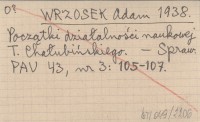 WRZOSEK Adam 1938.
Początki działalności naukowej
T. Chałubińskiego. — Spraw.
PAU 43, nr 3: 105-107.